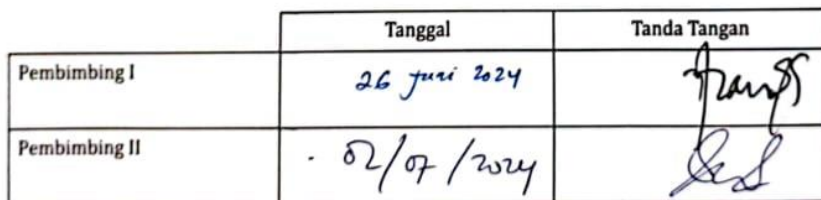 Tanggal Tanda Tangan
Pembimbing I 26 Juni 2024
Pembimbing II . 02/07/2024